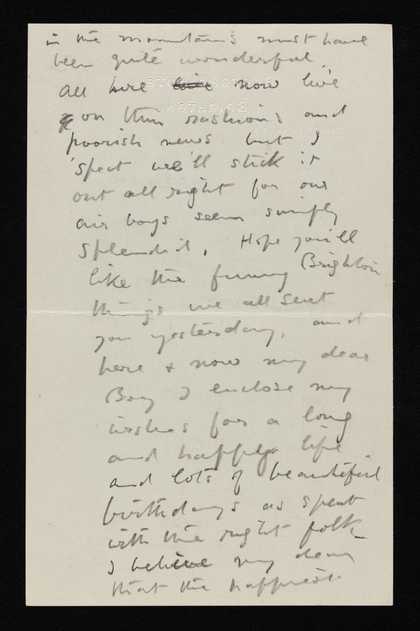 in the mountains must have
been quite wonderful.
All here now live
on thin rashions and
poorish news but I
'spect we'll stick it
out all right for our
air boys seem simply
splendid. Hope you'll
like the funny Brighton
things we all sent
you yesterday, and
here & now my dear
Boy I enclose my
wishes for a long
and happy life
and lots of beautiful
birthdays as spent
with the right folk
I believe my dear
that the happiest